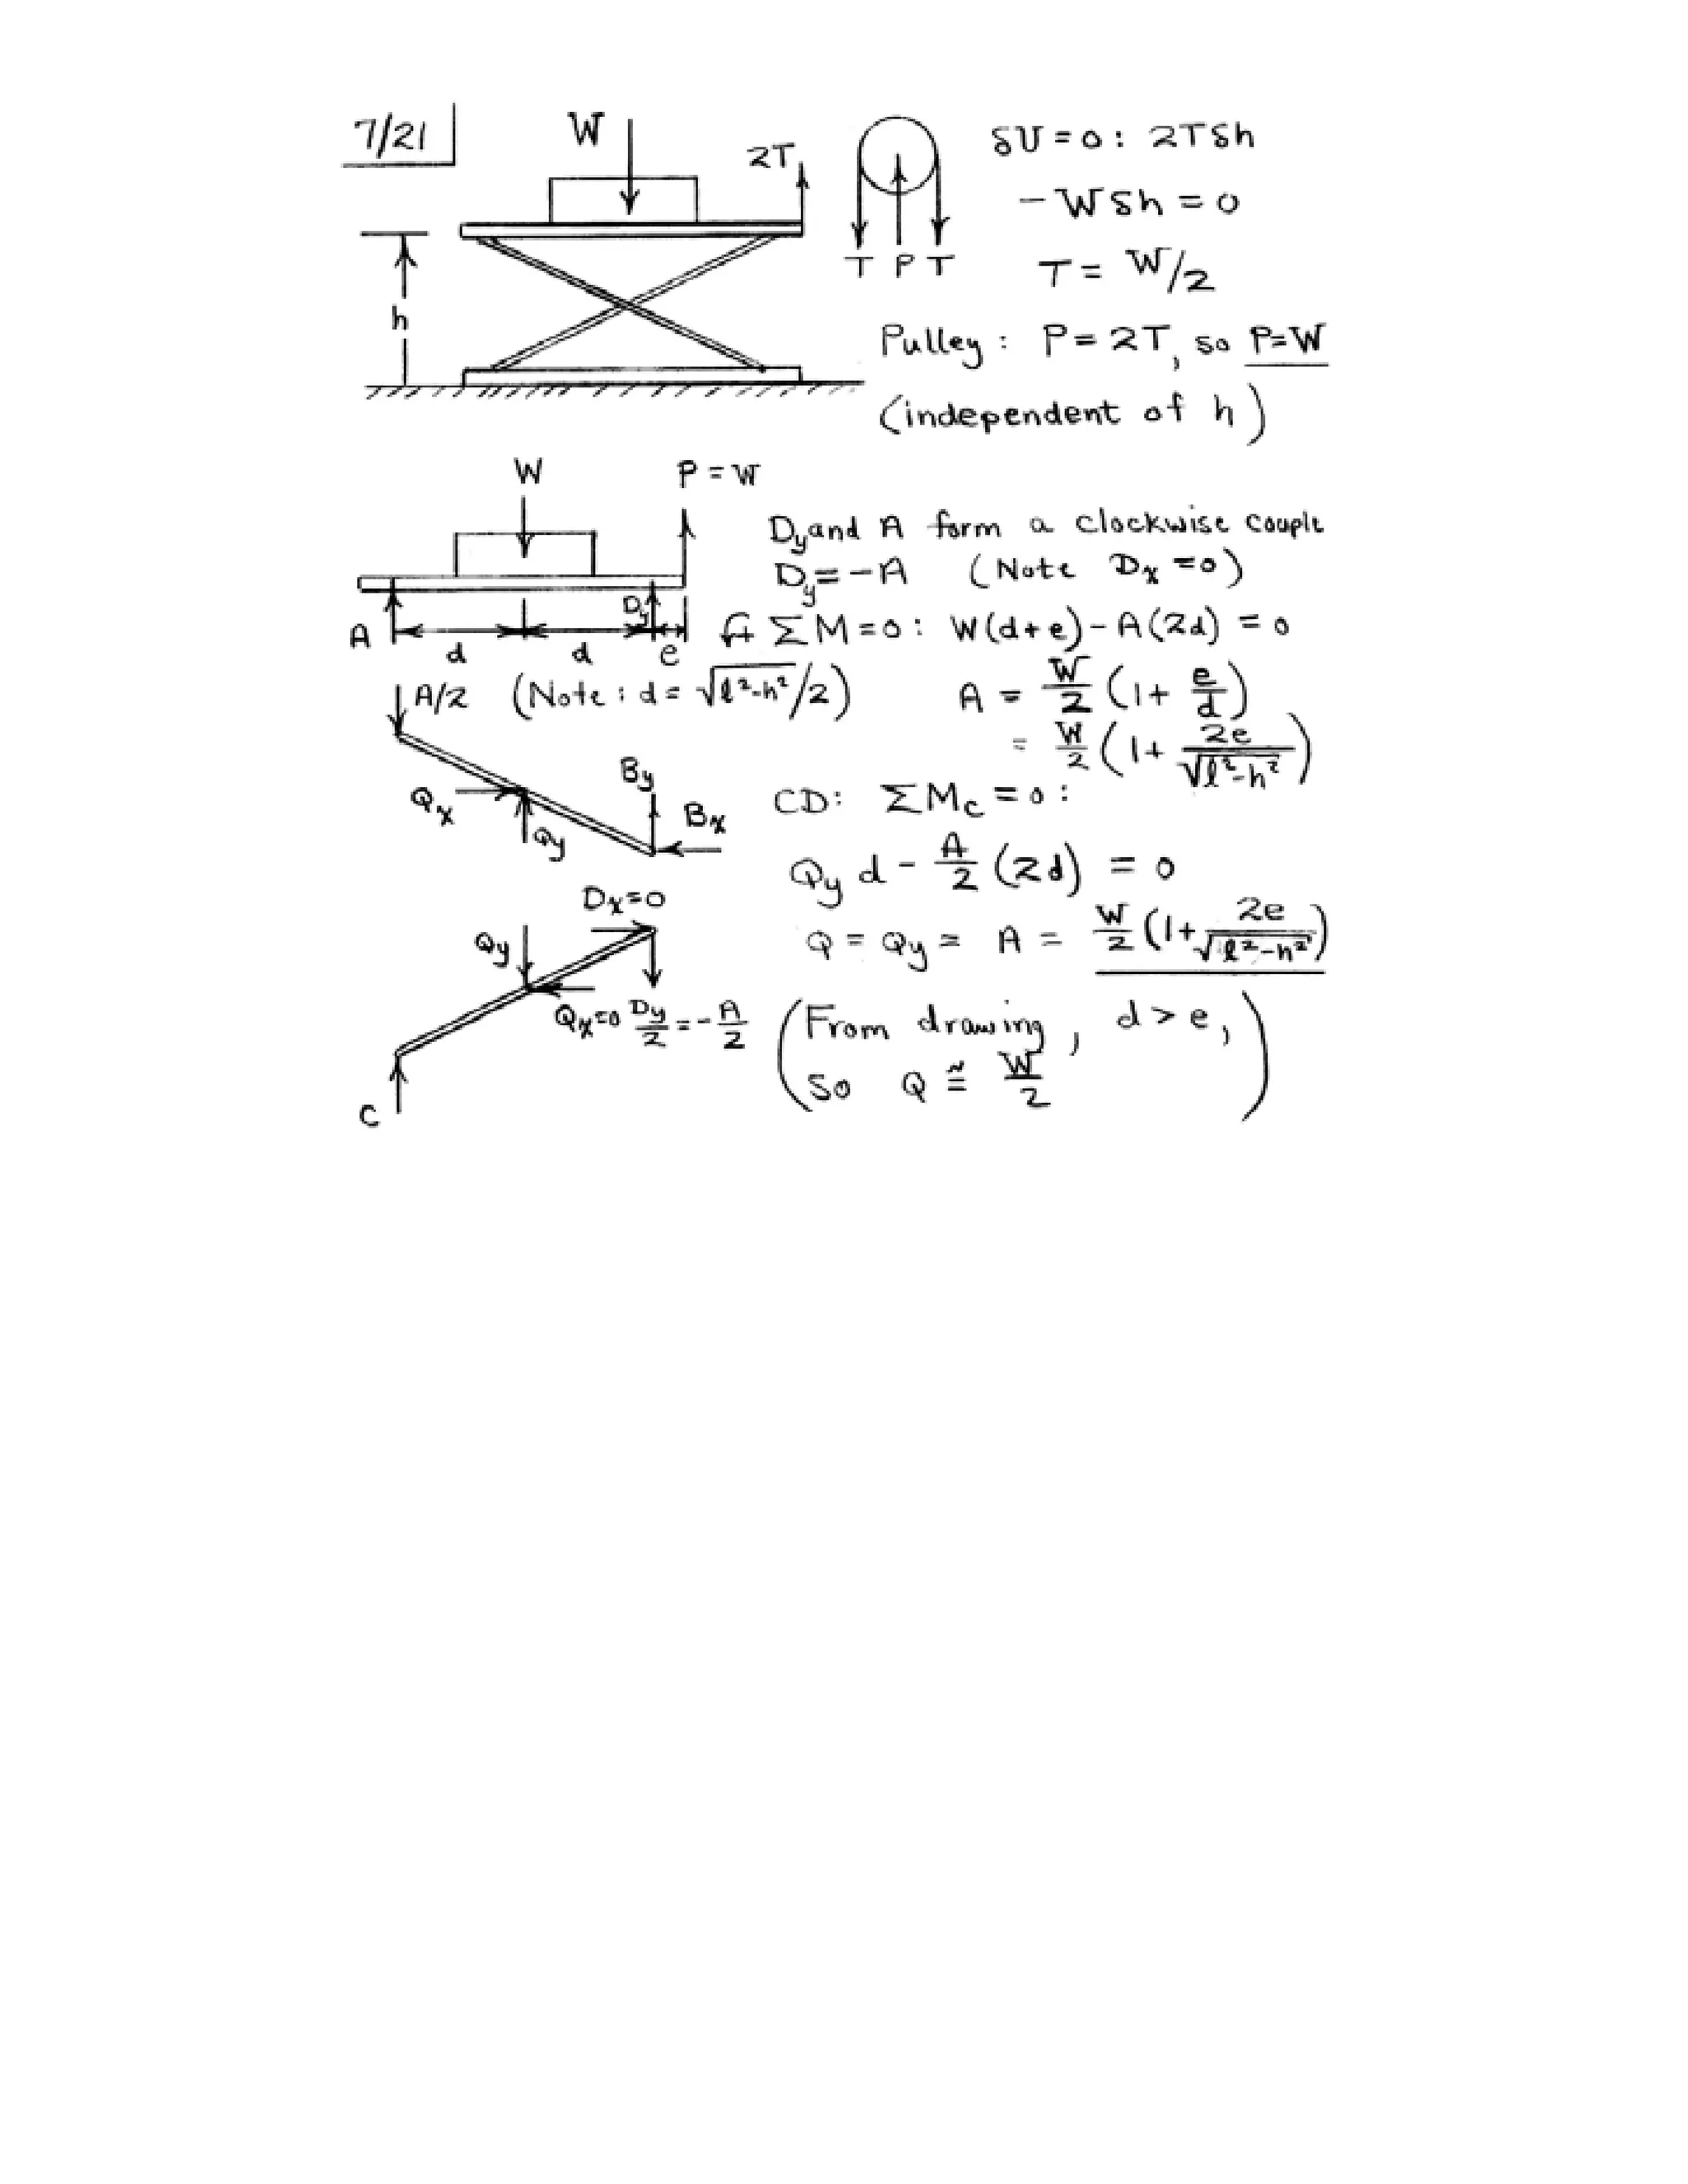 7/21
W
2T
h
T P T
δU = 0 : 2Tδh
- Wδh = 0
T = W/2
Pulley : P = 2T, so P=W
(independent of h)
W
P = W
A
d
d
Dy
e
Dy and A form a clockwise couple
Dy = -A (Note Dx = 0)
ΣM = 0 : W(d+e) - A(2d) = 0
(Note : d = √(l²-h²)/2)
A = W/2 (1 + e/d)
= W/2 (1 + 2e/√(l²-h²))
A/2
Qx
Qy
By
Bx
CD: ΣMc = 0 :
Qy d - A/2 (2d) = 0
Q = Qy = A = W/2 (1 + 2e/√(l²-h²))
Dx=0
Qy
Qx=0
Dy/2 = -A/2
C
(From drawing, d > e,
so Q ≅ W/2)